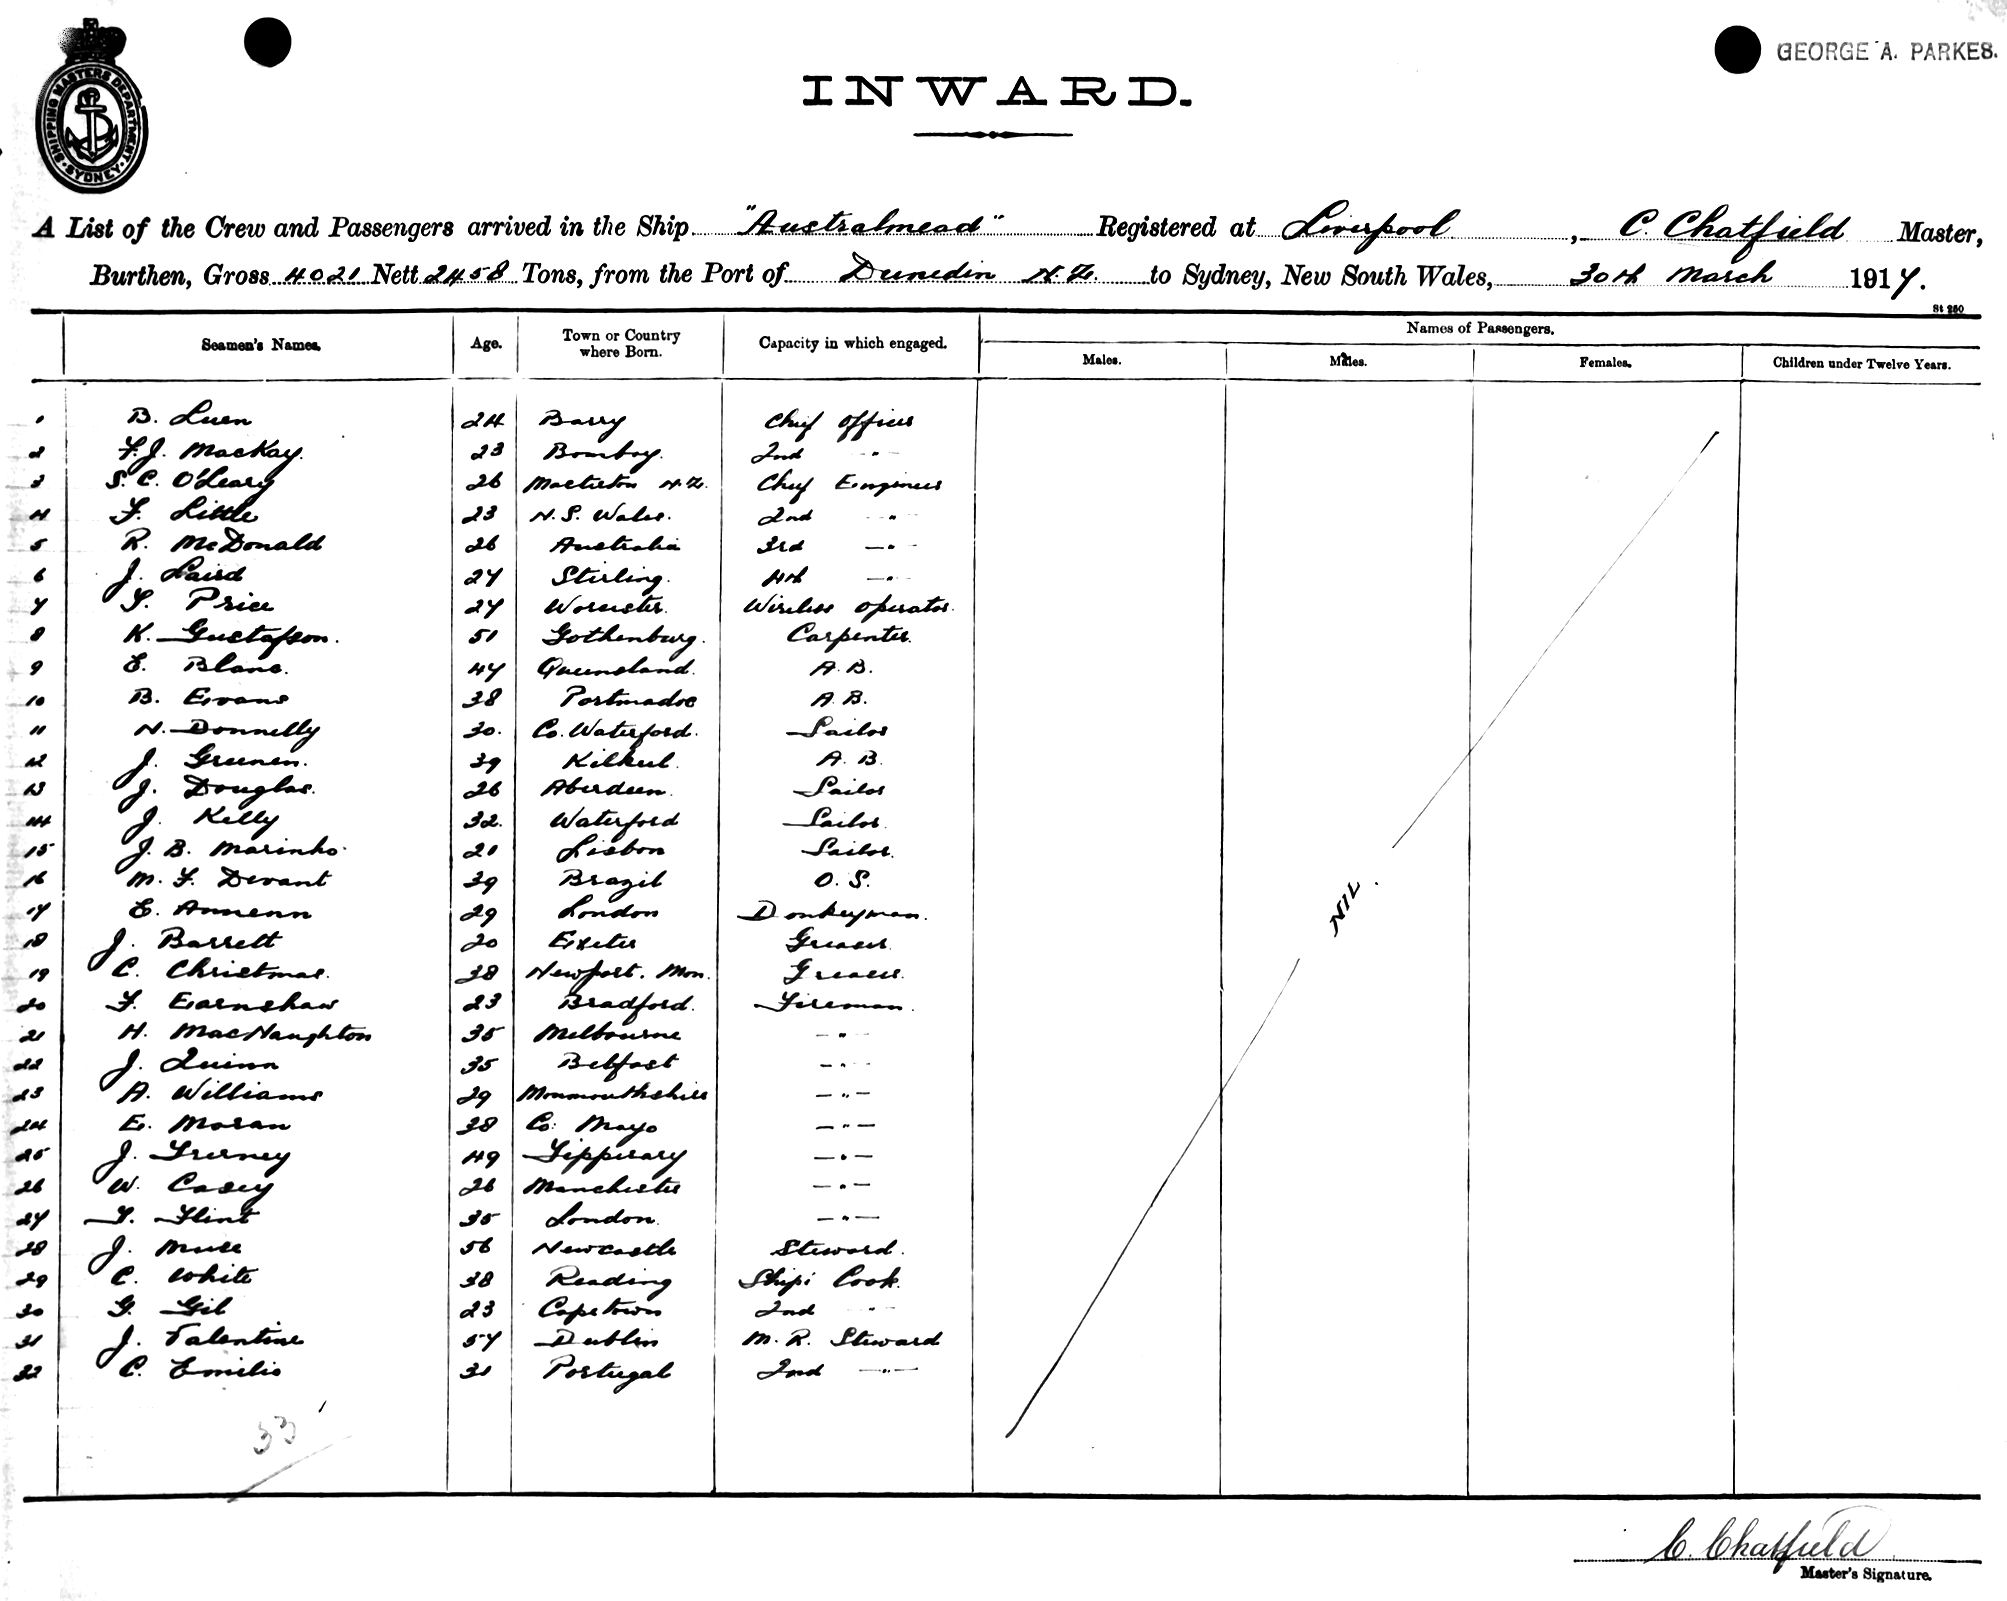 SHIPPING MASTERS DEPARTMENT. SYDNEY
GEORGE A. PARKES.
INWARD.
A List of the Crew and Passengers arrived in the Ship "Australmead" Registered at Liverpool, C. Chatfield Master,
Burthen, Gross 4021 Nett 2458 Tons, from the Port of Dunedin N.Z. to Sydney, New South Wales, 30th March 1917.
St 250
Seamen's Names. Age. Town or Country where Born. Capacity in which engaged. Names of Passengers.
Males. Males. Females. Children under Twelve Years.
1 B. Luen 24 Barry Chief Officer
2 F.J. MacKay. 23 Bombay. 2nd -"-
3 S. C. O'Leary 26 N.Z. Chief Engineer
4 F. Little 23 N. S. Wales. 2nd -"-
5 R. McDonald 26 Australia 3rd -"-
6 J. Laird 27 Stirling. 4th -"-
7 S. Price 27 Worcester. Wireless Operator.
8 K. Gustafson. 51 Gothenburg. Carpenter.
9 E. Blane. 47 Queensland. A. B.
10 B. Evans 38 Portmadoc A. B.
11 N. Donnelly 30. Co. Waterford. Sailor
12 J. Greenen. 39 Kilkeel. A. B.
13 J. Douglas. 26 Aberdeen. Sailor
14 J. Kelly 32. Waterford Sailor.
15 J. B. Marinho. 21 Lisbon Sailor.
16 M. F. Devant 39 Brazil O. S.
17 E. 29 London Donkeyman.
18 J. Barrett 20 Exeter Greaser.
19 C. Christmas. 38 Newport. Mon. Greaser.
20 F. Earnshaw 23 Bradford. Fireman.
21 H. MacNaughton 35 Melbourne -"-
22 J. Quinn 35 Belfast -"-
23 A. Williams 29 Monmouthshire -"-
24 E. Moran 38 Co. Mayo -"-
25 J. 49 Tipperary -"-
26 W. Casey 26 Manchester -"-
27 T. Flint 35 London. -"-
28 J. 56 Newcastle Steward.
29 C. White 38 Reading Ships Cook.
30 G. Gil 23 Capetown 2nd -"-
31 J. Valentine 57 Dublin M. R. Steward
32 C. Emilio 31 Portugal 2nd -"-
NIL.
33
C. Chatfield
Master's Signature.